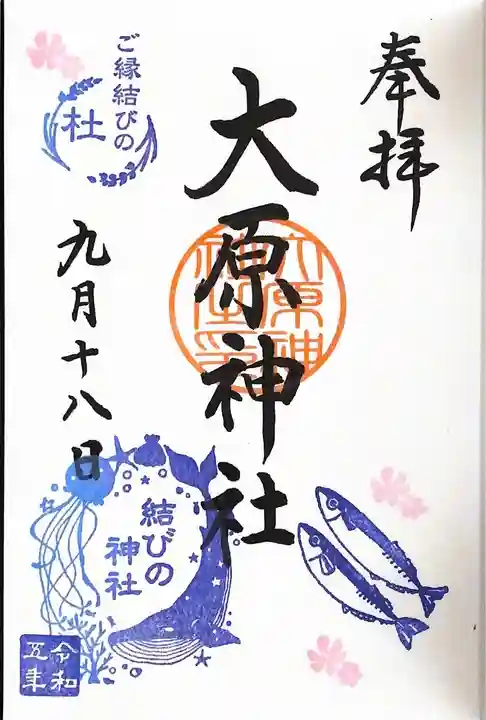 奉拝
大原神社
大原神社印
ご縁結びの
杜
九月十八日
結びの
神社
令和
五年